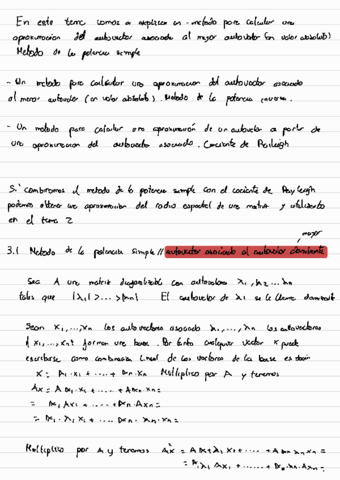 En este tema vamos a explicar un metodo para calcular una
aproximación del autovector asociado al mayor autovalor (en valor absoluto)
Metodo de la potencia simple
- Un metodo para calcular una aproximación del autovector asociado
al menor autovalor (en valor absoluto). Metodo de la potencia inversa.
- Un metodo para calcular una aproximación de un autovalor a partir de
una aproximación del autovector asociado. Cociente de Rayleigh
Si combinamos el metodo de la potencia simple con el cociente de Rayleigh
podemos obtener una aproximación del radio espectral de una matriz y utilizarlo
en el tema 2
mayor
3.1 Metodo de la potencia simple // autovector asociado al autovalor dominante
Sea A una matriz diagonalizable con autovalores λ1, λ2 ... λn
tales que |λ1| > ... > |λn| El autovector de λ1 se le llama dominante
Sean x1, ..., xn los autovectores asociado λ1, ..., λn los autovectores
{x1, ..., xn} forman una base. Por tanto cualquier vector x puede
escribirse como combinación lineal de los vectores de la base es decir
x = α1·x1 + .... + αn·xn Multiplico por A y tenemos
Ax = A α1·x1 + .... + A αn·xn =
= α1 A x1 + .... + αn·A xn =
= α1·λ1 x1 + .... αn·λn·xn =
Multiplico por A y tenemos A²x = A α1 λ1 x1 + .... + A αn λn xn =
= α1 λ1 A x1 + ... + αn·λn·A xn =